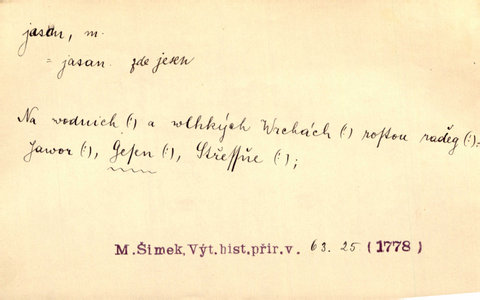 jasan, m.
= jasan. zde jesen
Na wodnich (:) a wlhkých Wrchách (:) roſtou raděg (:):
Jawor (:), Geſen (:), Střeſſňe (:);
M. Šimek, Výt. hist. přir. v. 63. 25. (1778)